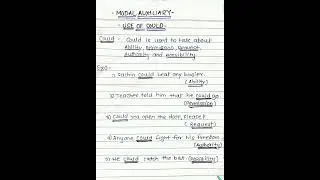 • MODAL AUXILIARY-
• USE OF COULD-
Could - Could is used to talk about
Ability, permission, request,
Authority and possibility.
Exs-
1) Sachin could beat any bowler.
(Ability)
2) Teacher told him that he could go.
(Permission)
3) Could you open the door, please?
(Request)
4) Anyone could fight for his freedom.
(Authority)
5) He could catch the ball. (possibility)